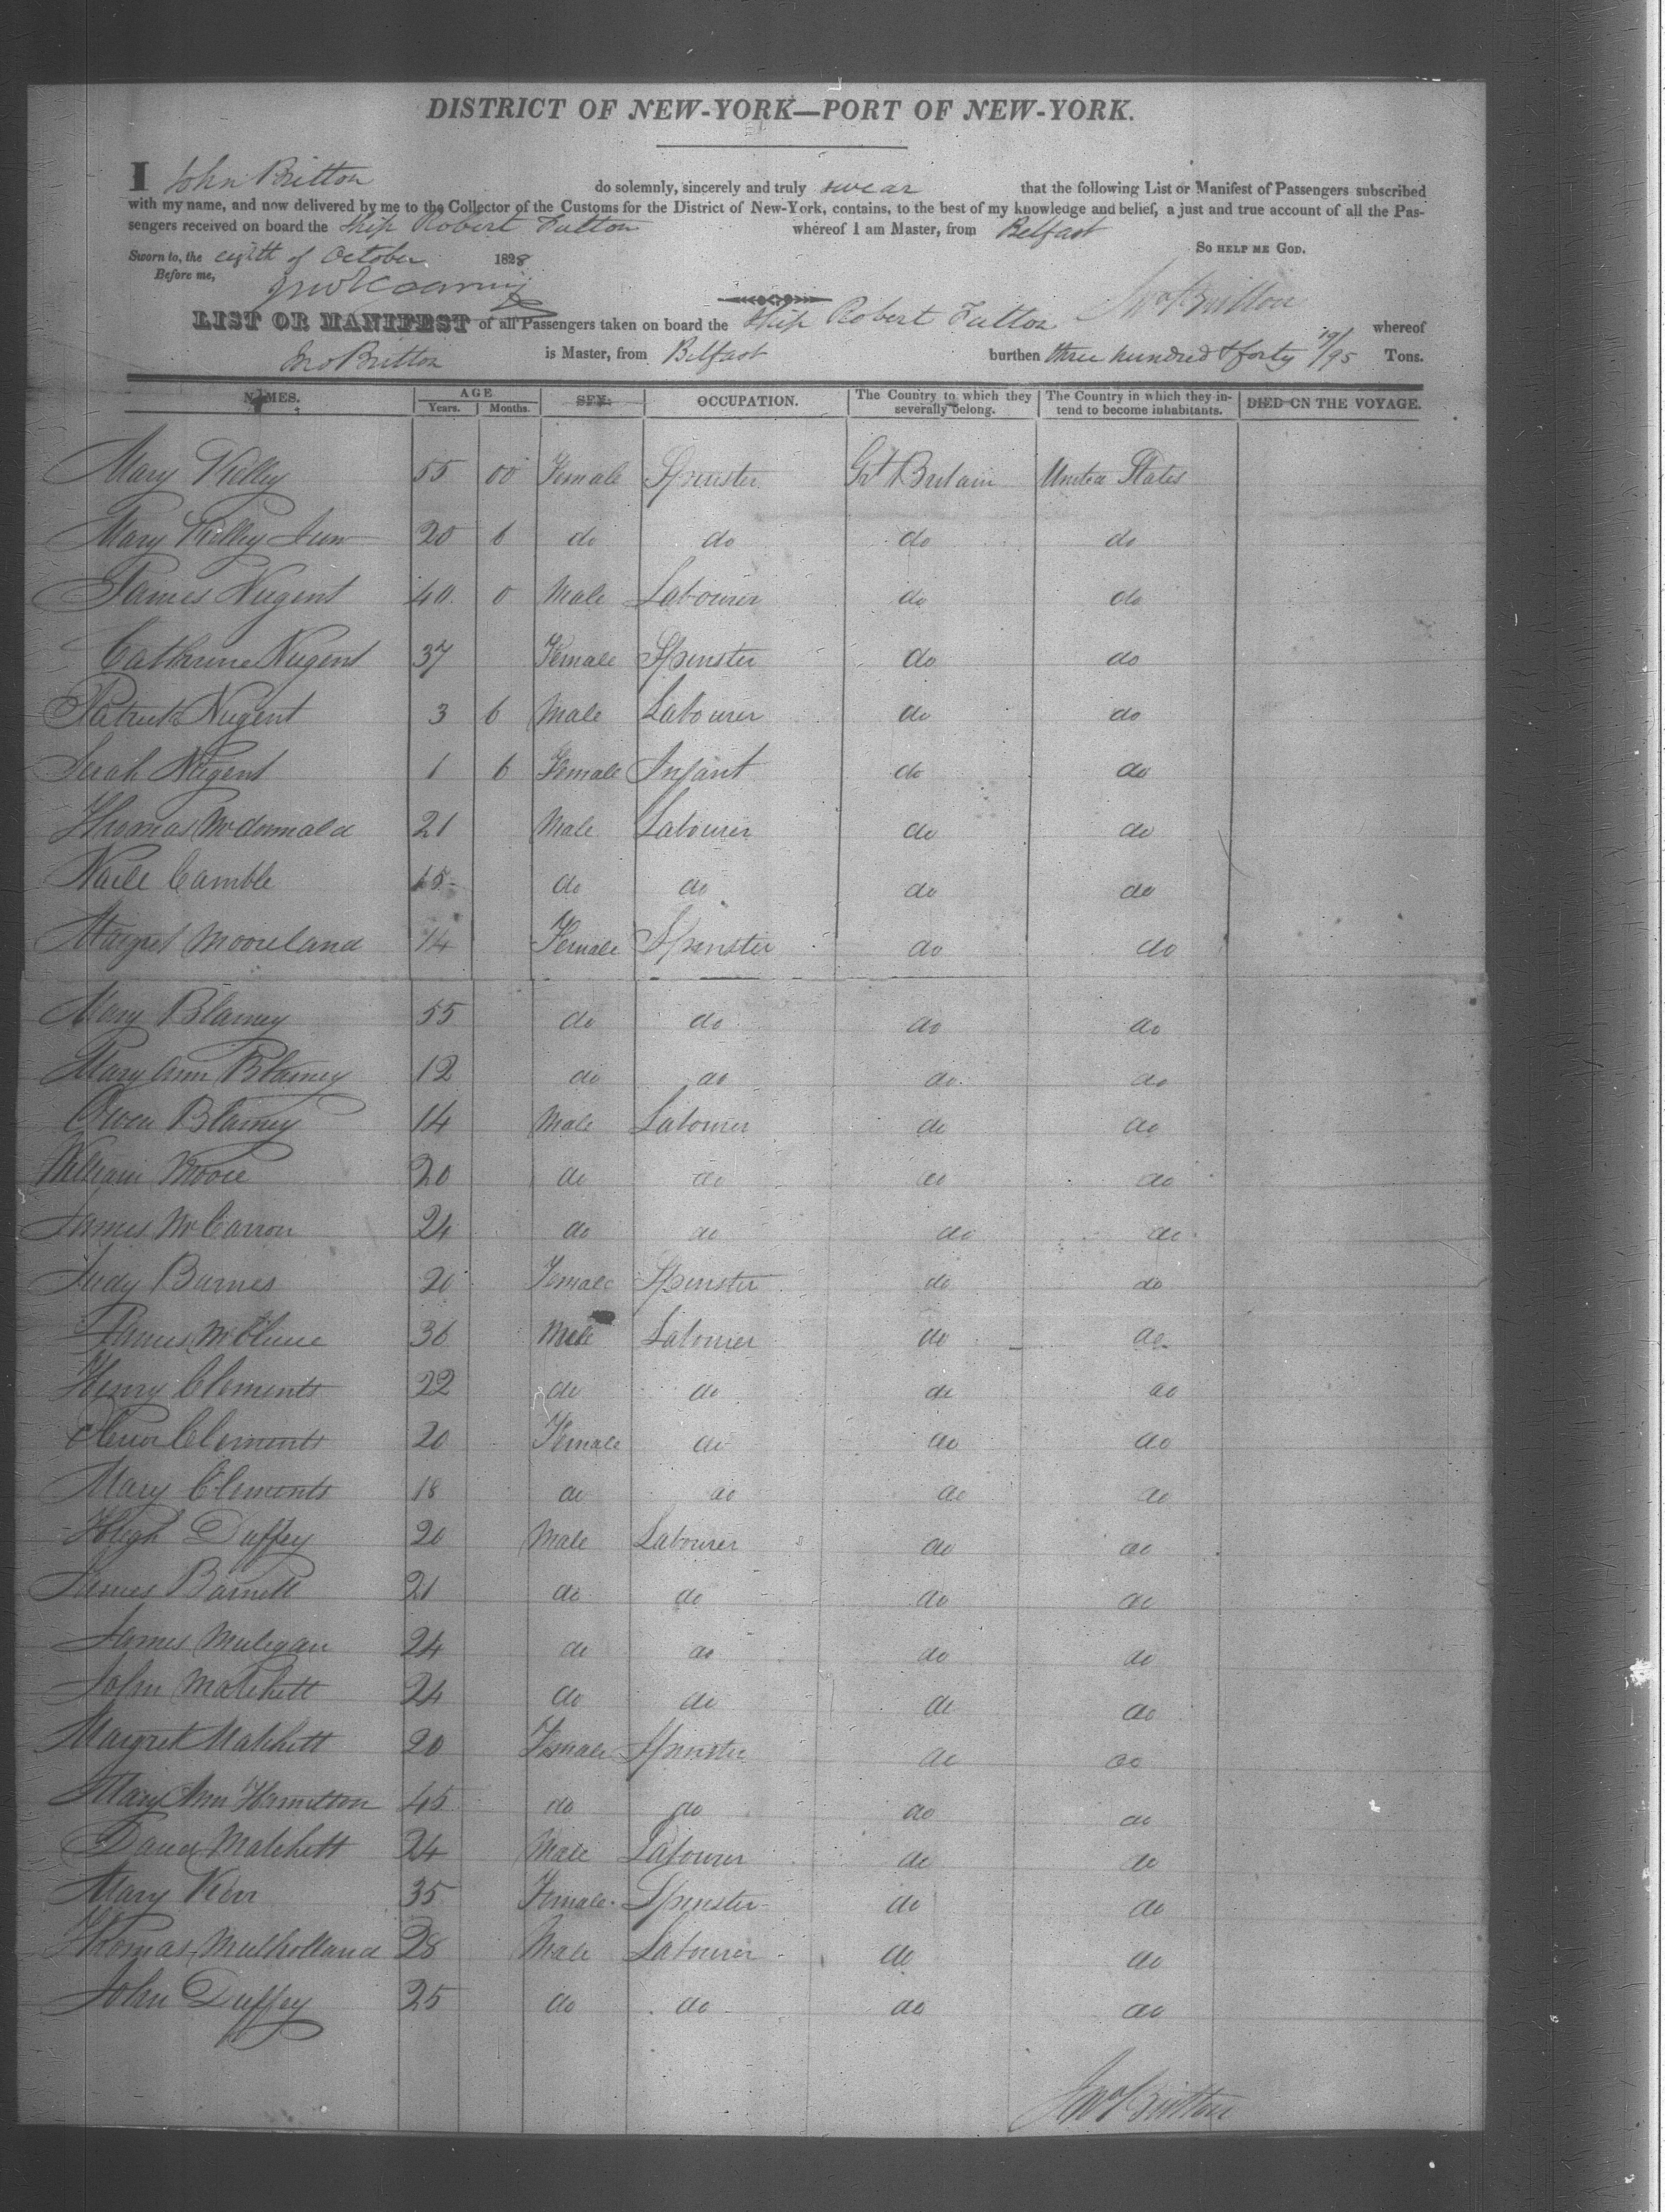 DISTRICT OF NEW-YORK—PORT OF NEW-YORK.
I John Britton do solemnly, sincerely and truly swear that the following List or Manifest of Passengers subscribed
with my name, and now delivered by me to the Collector of the Customs for the District of New-York, contains, to the best of my knowledge and belief, a just and true account of all the Pas-
sengers received on board the Ship Robert Fulton whereof I am Master, from Belfast
Sworn to, the eighth of October 1828 So HELP ME GOD.
Before me,
Jno Britton
LIST OR MANIFEST of all Passengers taken on board the Ship Robert Fulton whereof
Jno Britton is Master, from Belfast burthen three hundred & forty 19/95 Tons.
NAMES. AGE Years. Months. SEX. OCCUPATION. The Country to which they severally belong. The Country in which they in-tend to become inhabitants. DIED ON THE VOYAGE.
Mary Kelley 55 00 Female Spinster Gt Britain United States
Mary Kelley Jun 20 6 do do do do
James Nugent 40 0 Male Labourer do do
Catherine Nugent 37 Female Spinster do do
Patrick Nugent 3 6 Male Labourer do do
Sarah Nugent 1 6 Female Infant do do
Thomas McDonnald 21 Male Labourer do do
Camble 15 do do do do
Margret Mooreland 14 Female Spinster do do
Mary Blamey 55 do do do do
Mary Ann Blamey 12 do do do do
Owen Blamey 14 Male Labourer do do
William Moore 20 do do do do
James McCarron 24 do do do do
Judy Barnes 20 Female Spinster do do
James McClune 36 Male Labourer do do
Henry Clements 22 do do do do
Clements 20 Female do do do
Mary Clements 18 do do do do
Hugh Duffey 20 Male Labourer do do
James Barnett 21 do do do do
James Mulegan 24 do do do do
John Matchett 24 do do do do
Margret Matchett 20 Female Spinster do do
Mary Ann Hamilton 45 do do do do
David Matchett 24 Male Labourer do do
Mary Kerr 35 Female Spinster do do
Thomas Mulholland 28 Male Labourer do do
John Duffey 25 do do do do
Jno Britton